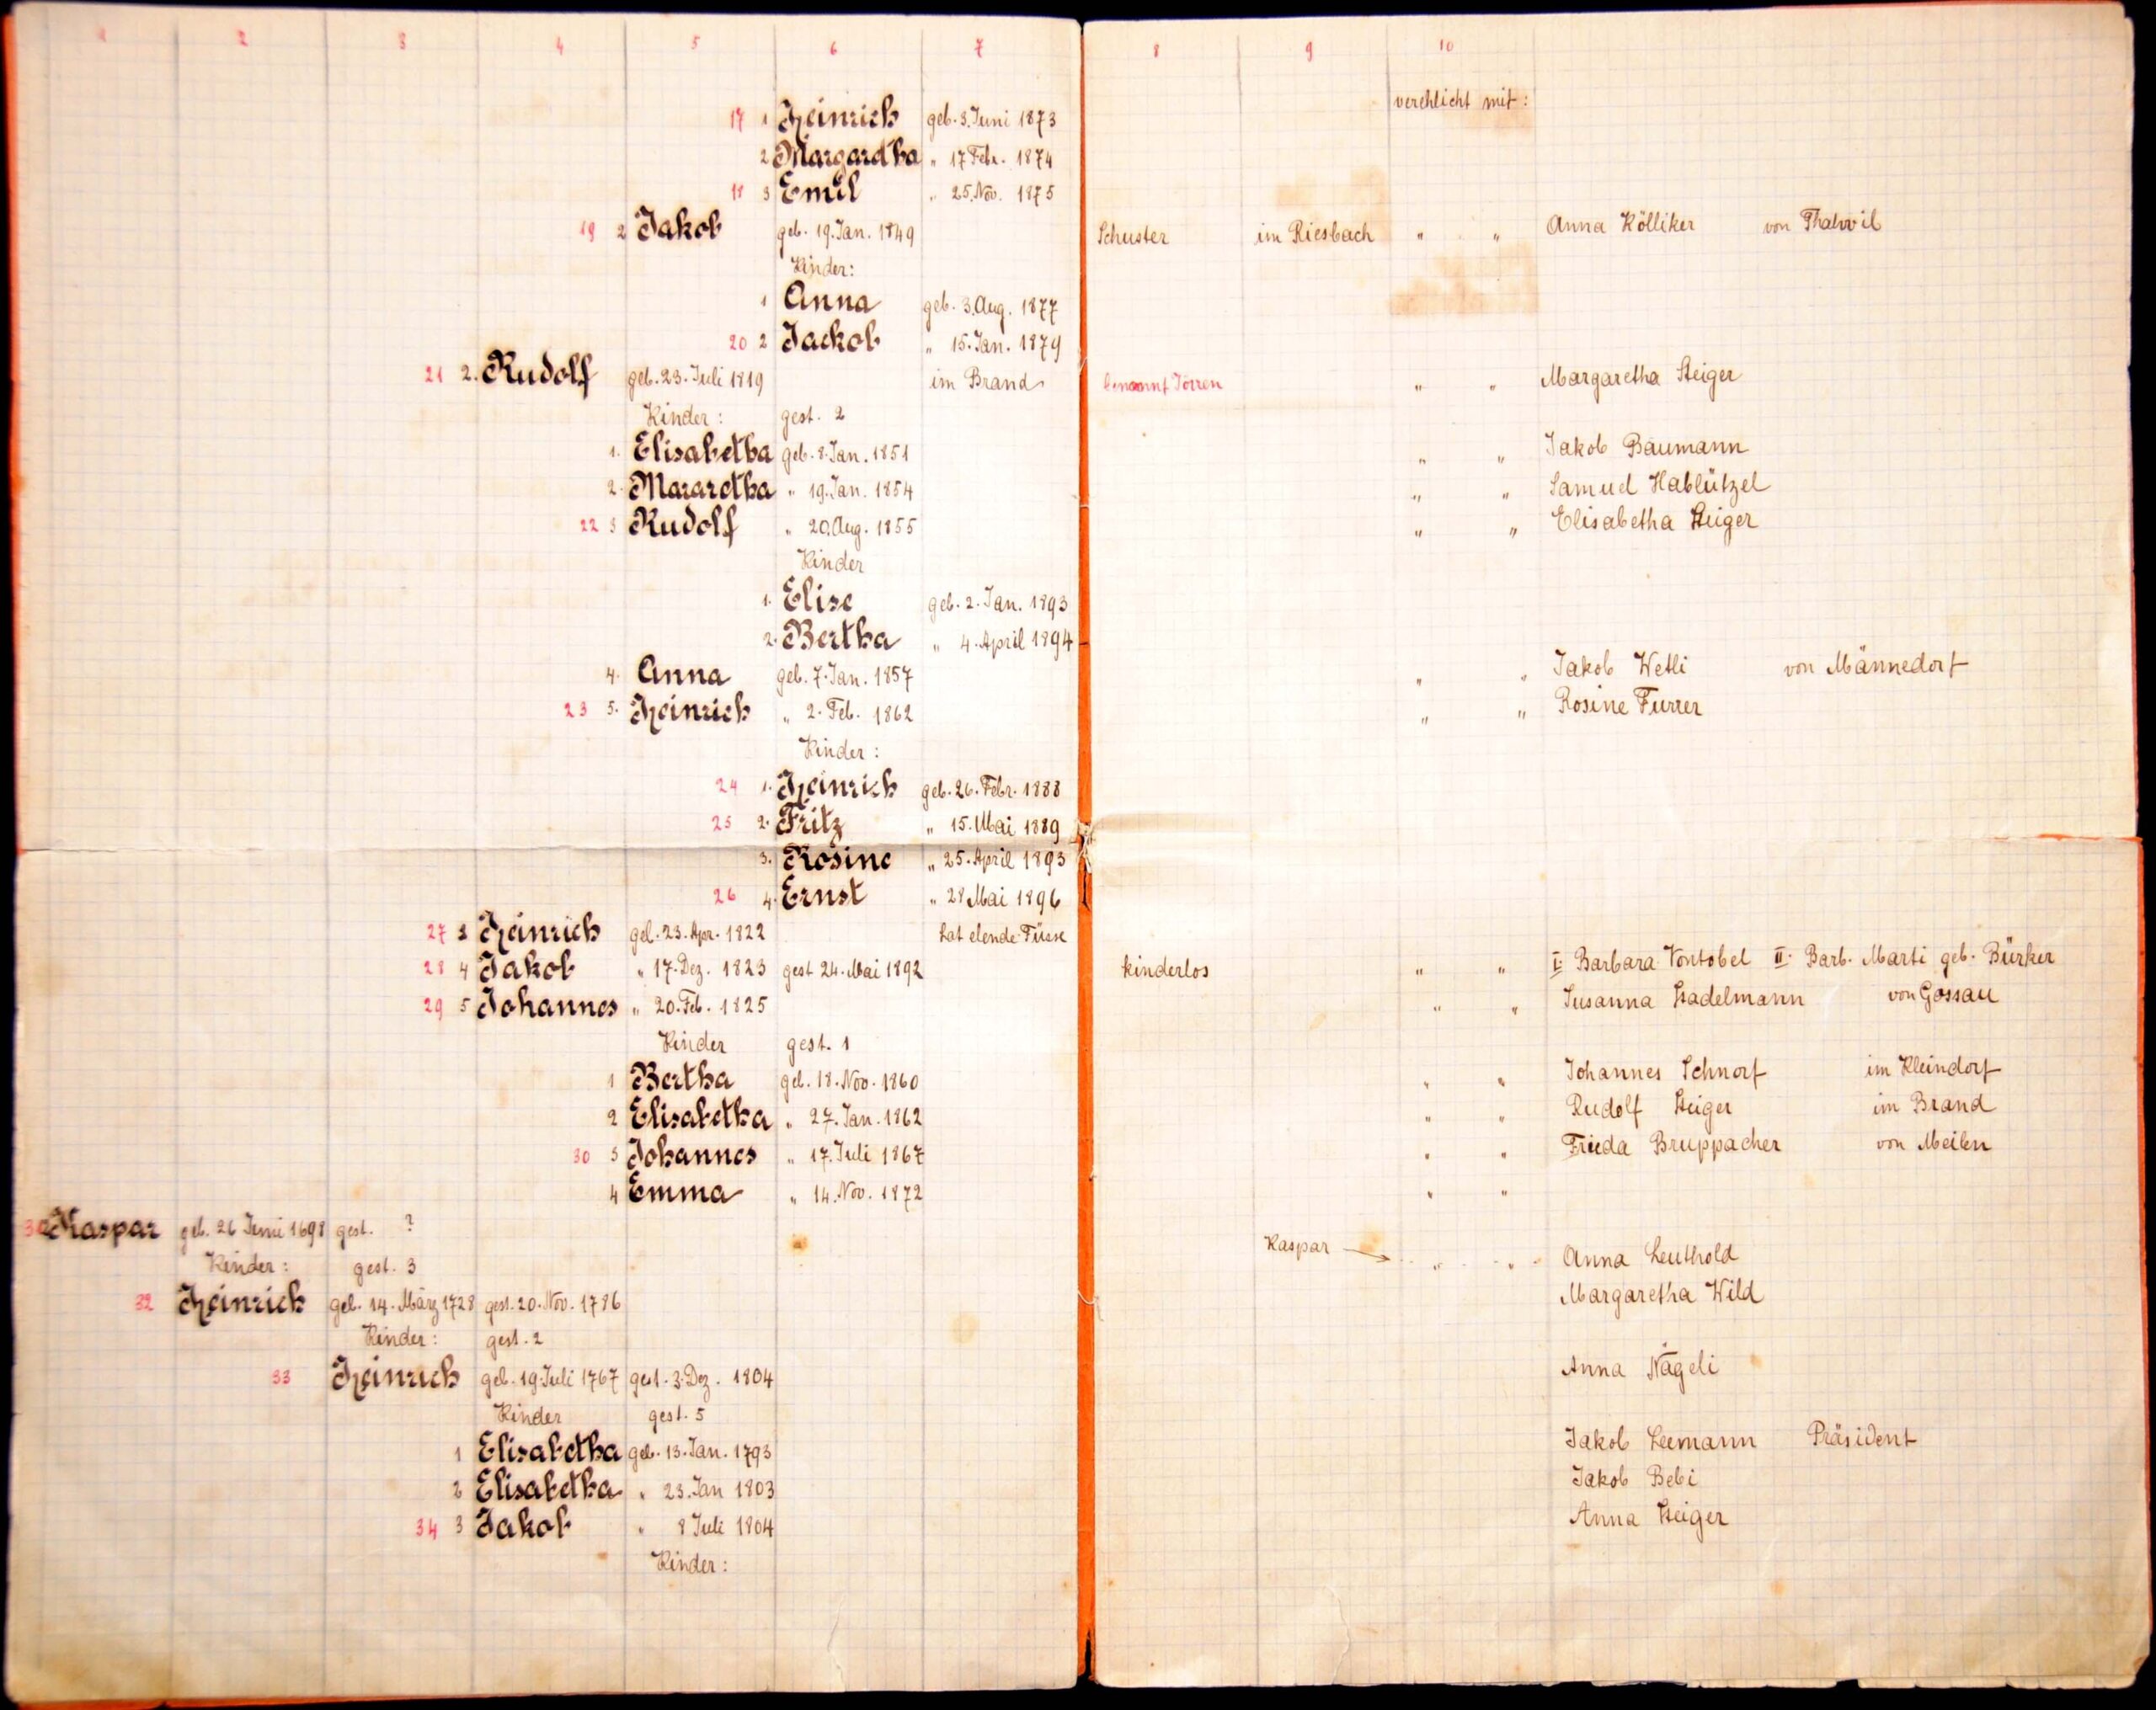 1 2 3 4 5 6 7 8 9 10
verehlicht mit:
17 1 Heinrich geb. 3. Juni 1873
2 Margaretha " 17 Febr. 1874
18 3 Emil " 25. Nov. 1875
19 2 Jakob geb. 19. Jan. 1849 Schuster im Riesbach " " Anna Kölliker von Thalwil
Kinder:
1 Anna geb. 3. Aug. 1877
20 2 Jackob " 15. Jan. 1879
21 2. Rudolf geb. 23. Juli 1819 im Brand benannt Jörren " " Margaretha Steiger
Kinder: gest. 2
1. Elisabetha geb. 8. Jan. 1851 " " Jakob Baumann
2. Mararetha " 19. Jan. 1854 " " Samuel Hablützel
22 3 Rudolf " 20. Aug. 1855 " " Elisabetha Steiger
Kinder
1. Elise geb. 2. Jan. 1893
2. Bertha " 4. April 1894
4. Anna geb. 7. Jan. 1857 " " Jakob Wetli von Männedorf
23 5. Heinrich " 2. Feb. 1862 " " Rosine Furrer
Kinder:
24 1. Heinrich geb. 26. Febr. 1888
25 2. Fritz " 15. Mai 1889
3. Rosine " 25. April 1893
26 4. Ernst " 28 Mai 1896
27 3 Heinrich geb. 23. Apr. 1822 hat elende Füsse
28 4 Jakob " 17. Dez. 1823 gest 24. Mai 1892 kinderlos " " I. Barbara Vontobel II. Barb. Marti geb. Bürker
29 5 Johannes " 20. Feb. 1825 " " Susanna Stadelmann von Gossau
Kinder gest. 1
1 Bertha geb. 18. Nov. 1860 " " Johannes Schnorf im Kleindorf
2 Elisabetha " 27. Jan. 1862 " " Rudolf Steiger im Brand
30 3 Johannes " 17. Juli 1867 " " Frieda Bruppacher von Meilen
4 Emma " 14. Nov. 1872 " "
Kaspar geb. 26 Juni 1698 gest. ? Kaspar → " " Anna Leuthold
Kinder: gest. 3
32 Heinrich geb. 14. März 1728 gest. 20. Nov. 1786 Margaretha Wild
Kinder: gest. 2
33 Heinrich geb. 19. Juli 1767 gest. 3. Dez. 1804 Anna Nägeli
Kinder gest. 5
1 Elisabetha geb. 13. Jan. 1793 Jakob Leemann Präsident
2 Elisabetha " 23. Jan 1803 Jakob Bebi
34 3 Jakob " 8 Juli 1804 Anna Steiger
Kinder: